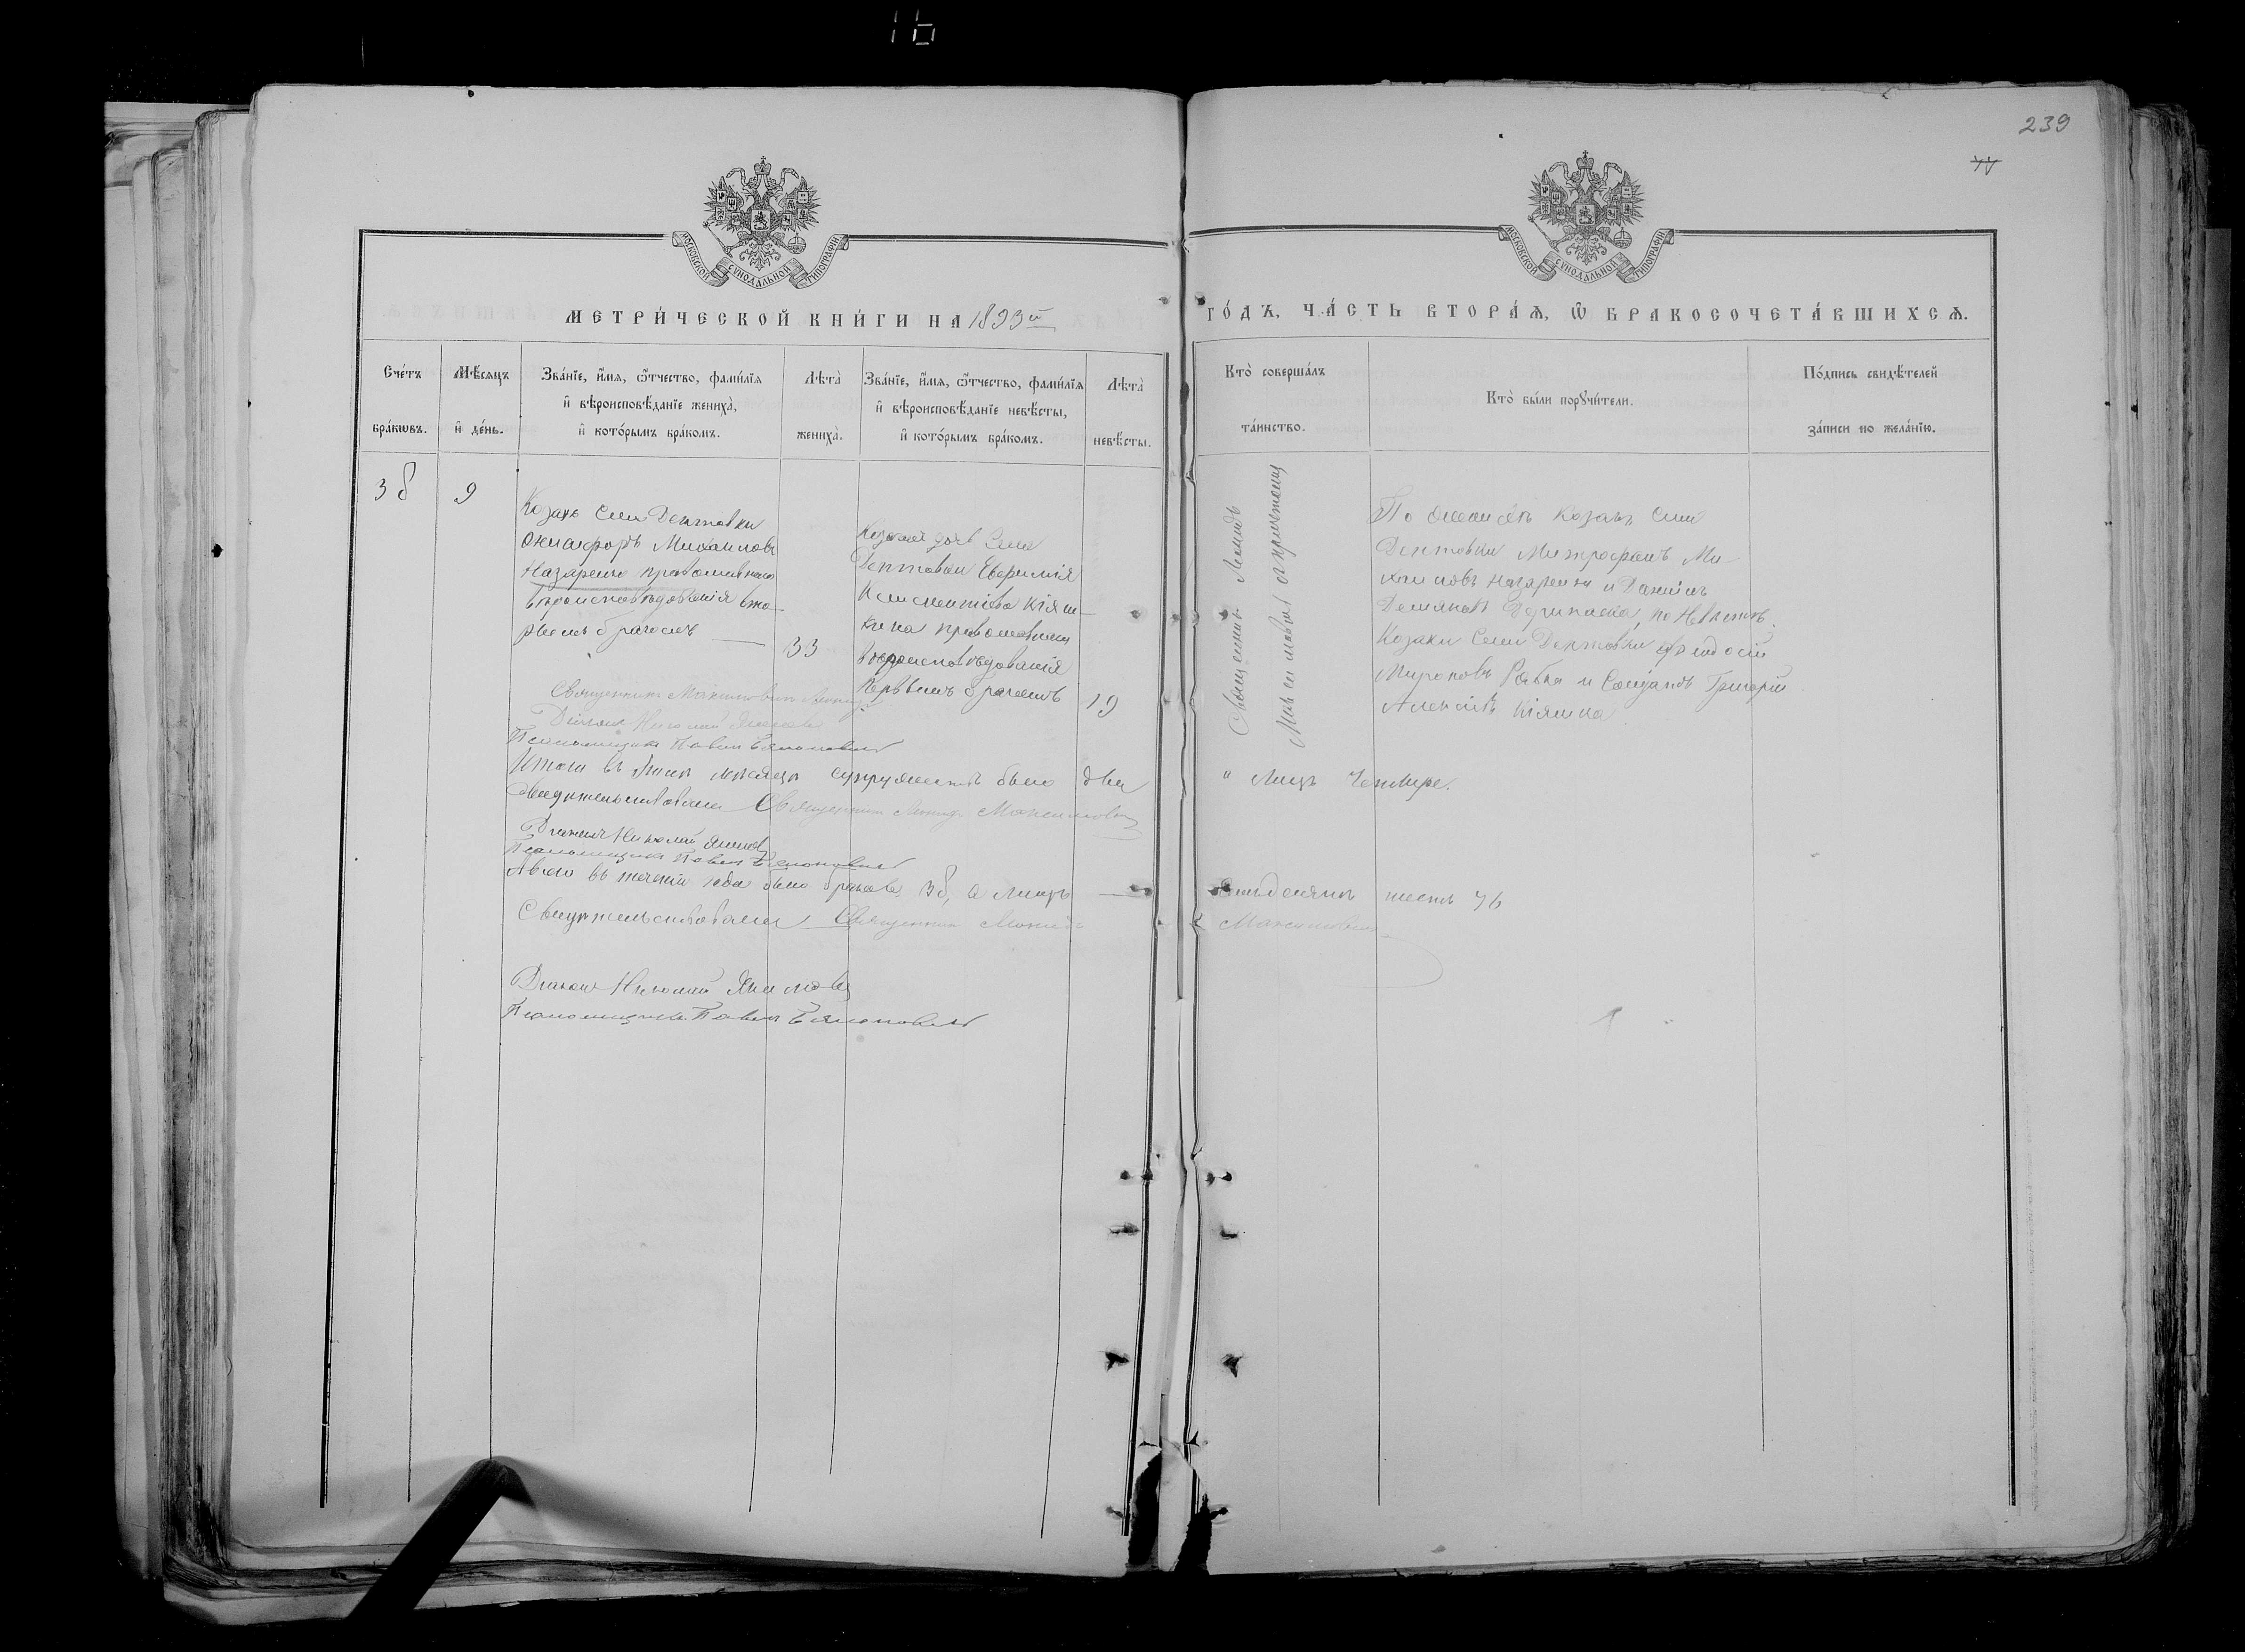 239
МОСКОВСКОЙ СѴНОДАЛЬНОЙ ТИПОГРАФІИ
МОСКОВСКОЙ СѴНОДАЛЬНОЙ ТИПОГРАФІИ
МЕТРИ́ЧЕСКОЙ КНИ́ГИ НА 1893й ГО́ДЪ, ЧА́СТЬ ВТОРА́Ѧ, Ѿ БРАКОСОЧЕТА́ВШИХСѦ.
Сче́тъ бра́кѡвъ.
Мѣ́сѧцъ и҆ де́нь.
Зва́нїе, и҆́мѧ, ѻ҆́тчество, фами́лїѧ
и҆ вѣроисповѣ́данїе жениха̀,
и҆ кото́рымъ бра́комъ.
Лѣта̀ жениха̀.
Зва́нїе, и҆́мѧ, ѻ҆́тчество, фами́лїѧ
и҆ вѣроисповѣ́данїе невѣ́сты,
и҆ кото́рымъ бра́комъ.
Лѣта̀ невѣ́сты.
Кто̀ соверша́лъ та́инство.
Кто̀ бы́ли порꙋчи́тели.
По́дпись свидѣ́телей
за́писи по жела́нїю.
38
9
Козакъ Села Дептовки
Михаиловъ
Назаренко православнаго
вѣроисповѣданія вто-
рымъ бракомъ
33
Села
Дептовки Евфимія
православнаго
вѣроисповѣданія
первымъ бракомъ
19
Священникъ Леонидъ
Максимовичъ съ причтомъ
По женихѣ Козаки Села
Дептовки Митрофанъ Ми-
хаиловъ Назаренко и Даніилъ
по Невѣстѣ
Козаки Села Дептовки Феодосій
Мироновъ и Григорій
Алексѣевъ Кіяшка
Священникъ Максимовичъ
Діаконъ Николай
Псаломщикъ Павелъ
Итого въ мѣсяцѣ супружествъ было два
" лицъ четыре.
Свидѣтельствовали Священникъ Леонидъ Максимовичъ
Діаконъ Николай
Псаломщикъ Павелъ
А всего въ теченіи года было браковъ 38, а лицъ
семьдесятъ шесть 76
Свидѣтельствовали Священникъ Леонидъ
Максимовичъ
Діаконъ Николай
Псаломщикъ Павелъ